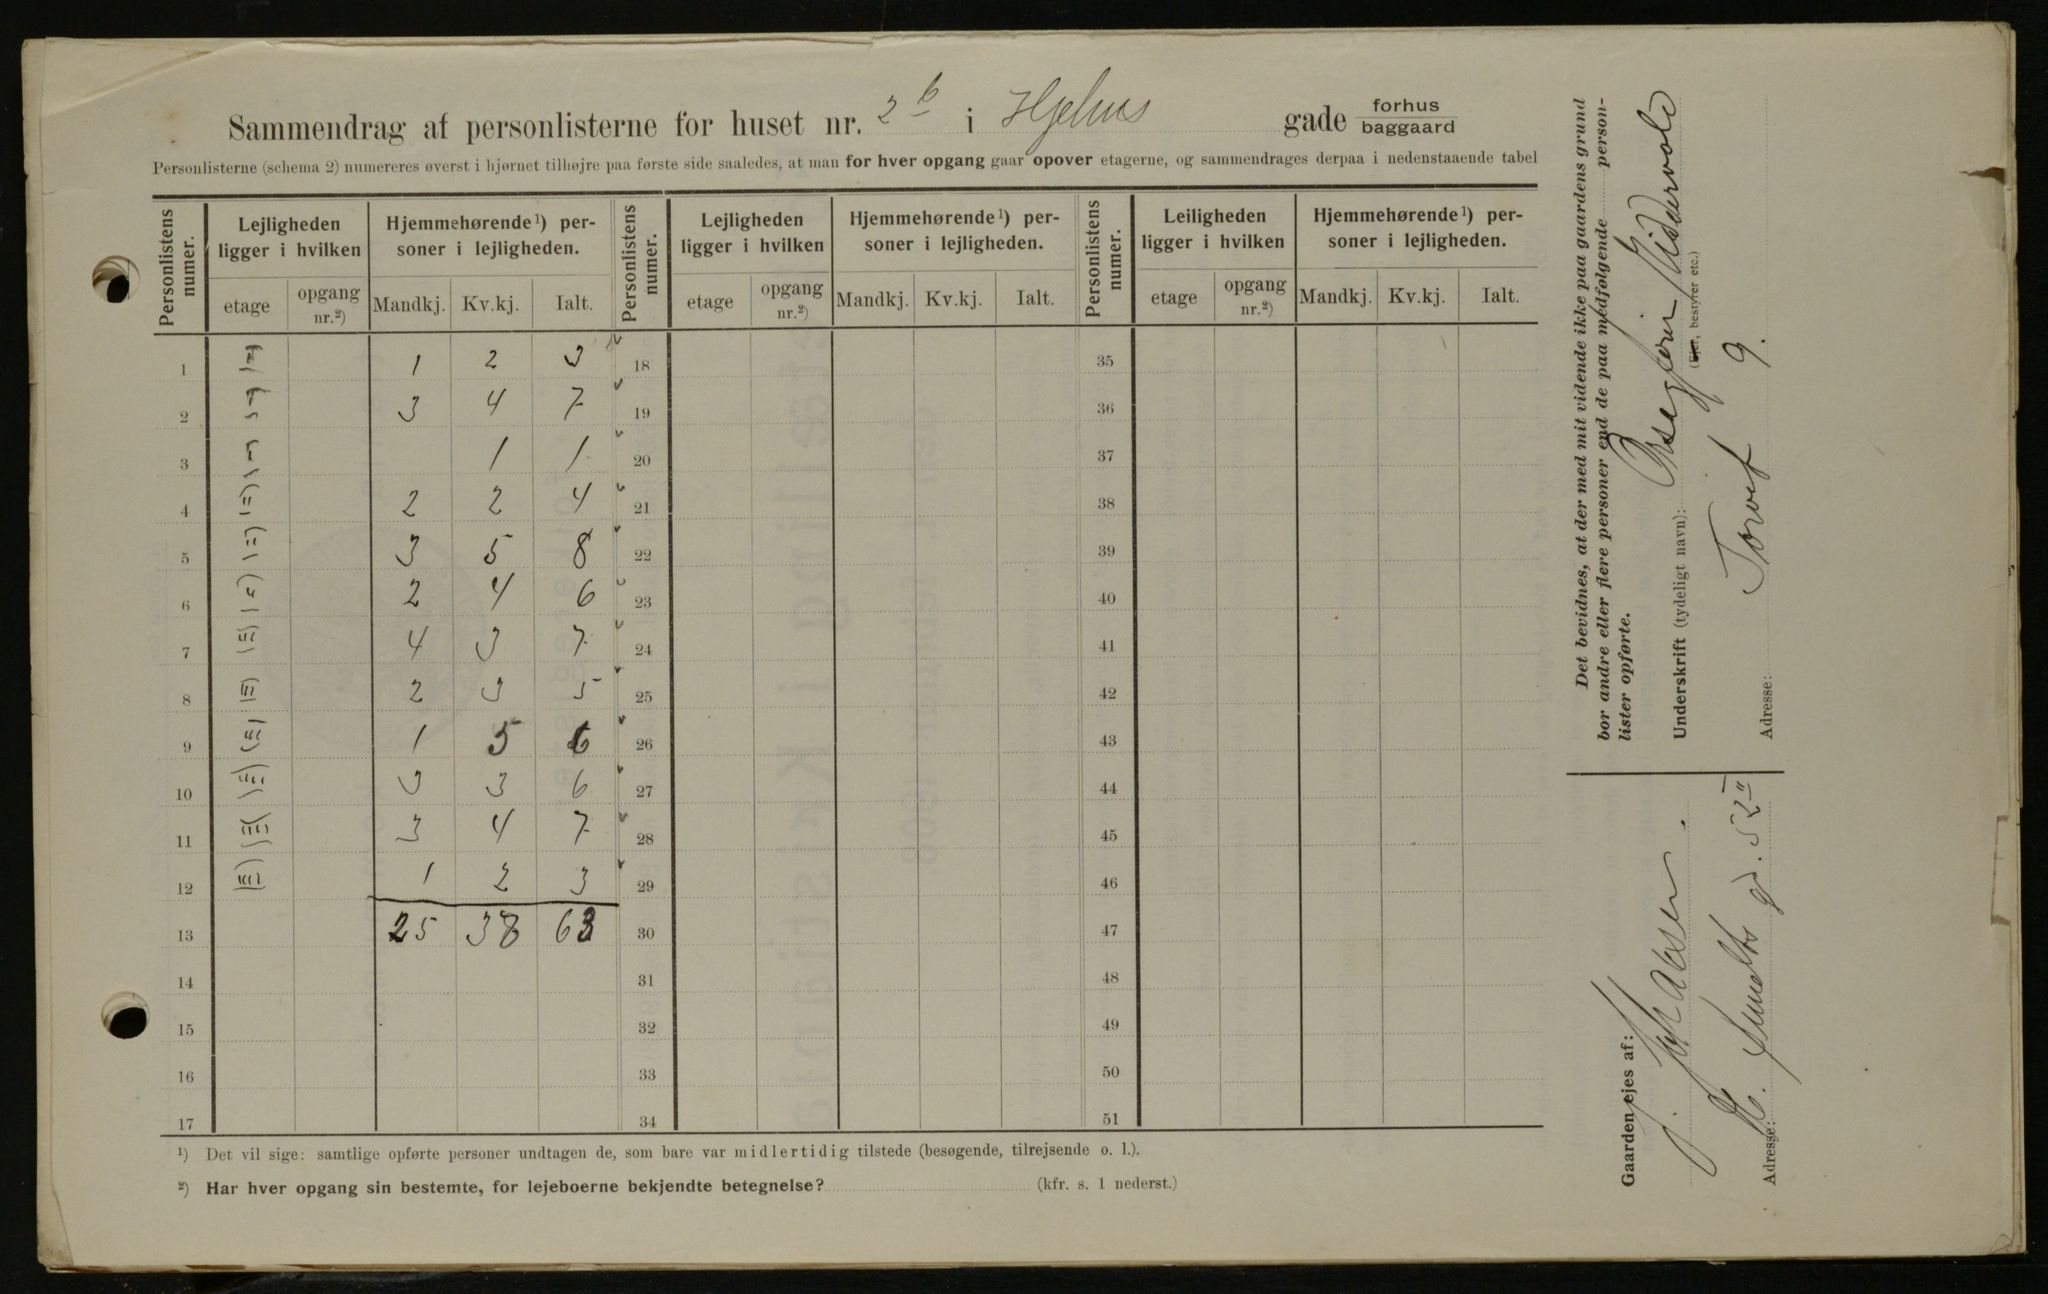 Sammendrag af personlisterne for huset nr. 2 b i Hjelms gade forhus baggaard
Personlisterne (schema 2) numereres øverst i hjørnet tilhøjre paa første side saaledes, at man for hver opgang gaar opover etagerne, og sammendrages derpaa i nedenstaaende tabel
Personlistens numer. Lejligheden ligger i hvilken Hjemmehørende¹) personer i lejligheden. Personlistens numer. Lejligheden ligger i hvilken Hjemmehørende¹) personer i lejligheden. Personlistens numer. Leiligheden ligger i hvilken Hjemmehørende¹) personer i lejligheden.
etage opgang nr.²) Mandkj. Kv.kj. Ialt. etage opgang nr.²) Mandkj. Kv.kj. Ialt. etage opgang nr.²) Mandkj. Kv.kj. Ialt.
1 1 2 3 18 35
2 3 4 7 19 36
3 1 1 20 37
4 2 2 4 21 38
5 3 5 8 22 39
6 2 4 6 23 40
7 4 3 7 24 41
8 2 3 5 25 42
9 1 5 6 26 43
10 3 3 6 27 44
11 3 4 7 28 45
12 1 2 3 29 46
13 25 38 63 30 47
14 31 48
15 32 49
16 33 50
17 34 51
¹) Det vil sige: samtlige opførte personer undtagen de, som bare var midlertidig tilstede (besøgende, tilrejsende o. l.).
²) Har hver opgang sin bestemte, for lejeboerne bekjendte betegnelse? (kfr. s. 1 nederst.)
Det bevidnes, at der med mit vidende ikke paa gaardens grund
bor andre eller flere personer end de paa medfølgende personlister opførte.
Underskrift (tydeligt navn):
(Ejer, bestyrer etc.)
Adresse: Torvet 9.
Gaarden ejes af:
Adresse: gd. 52 II